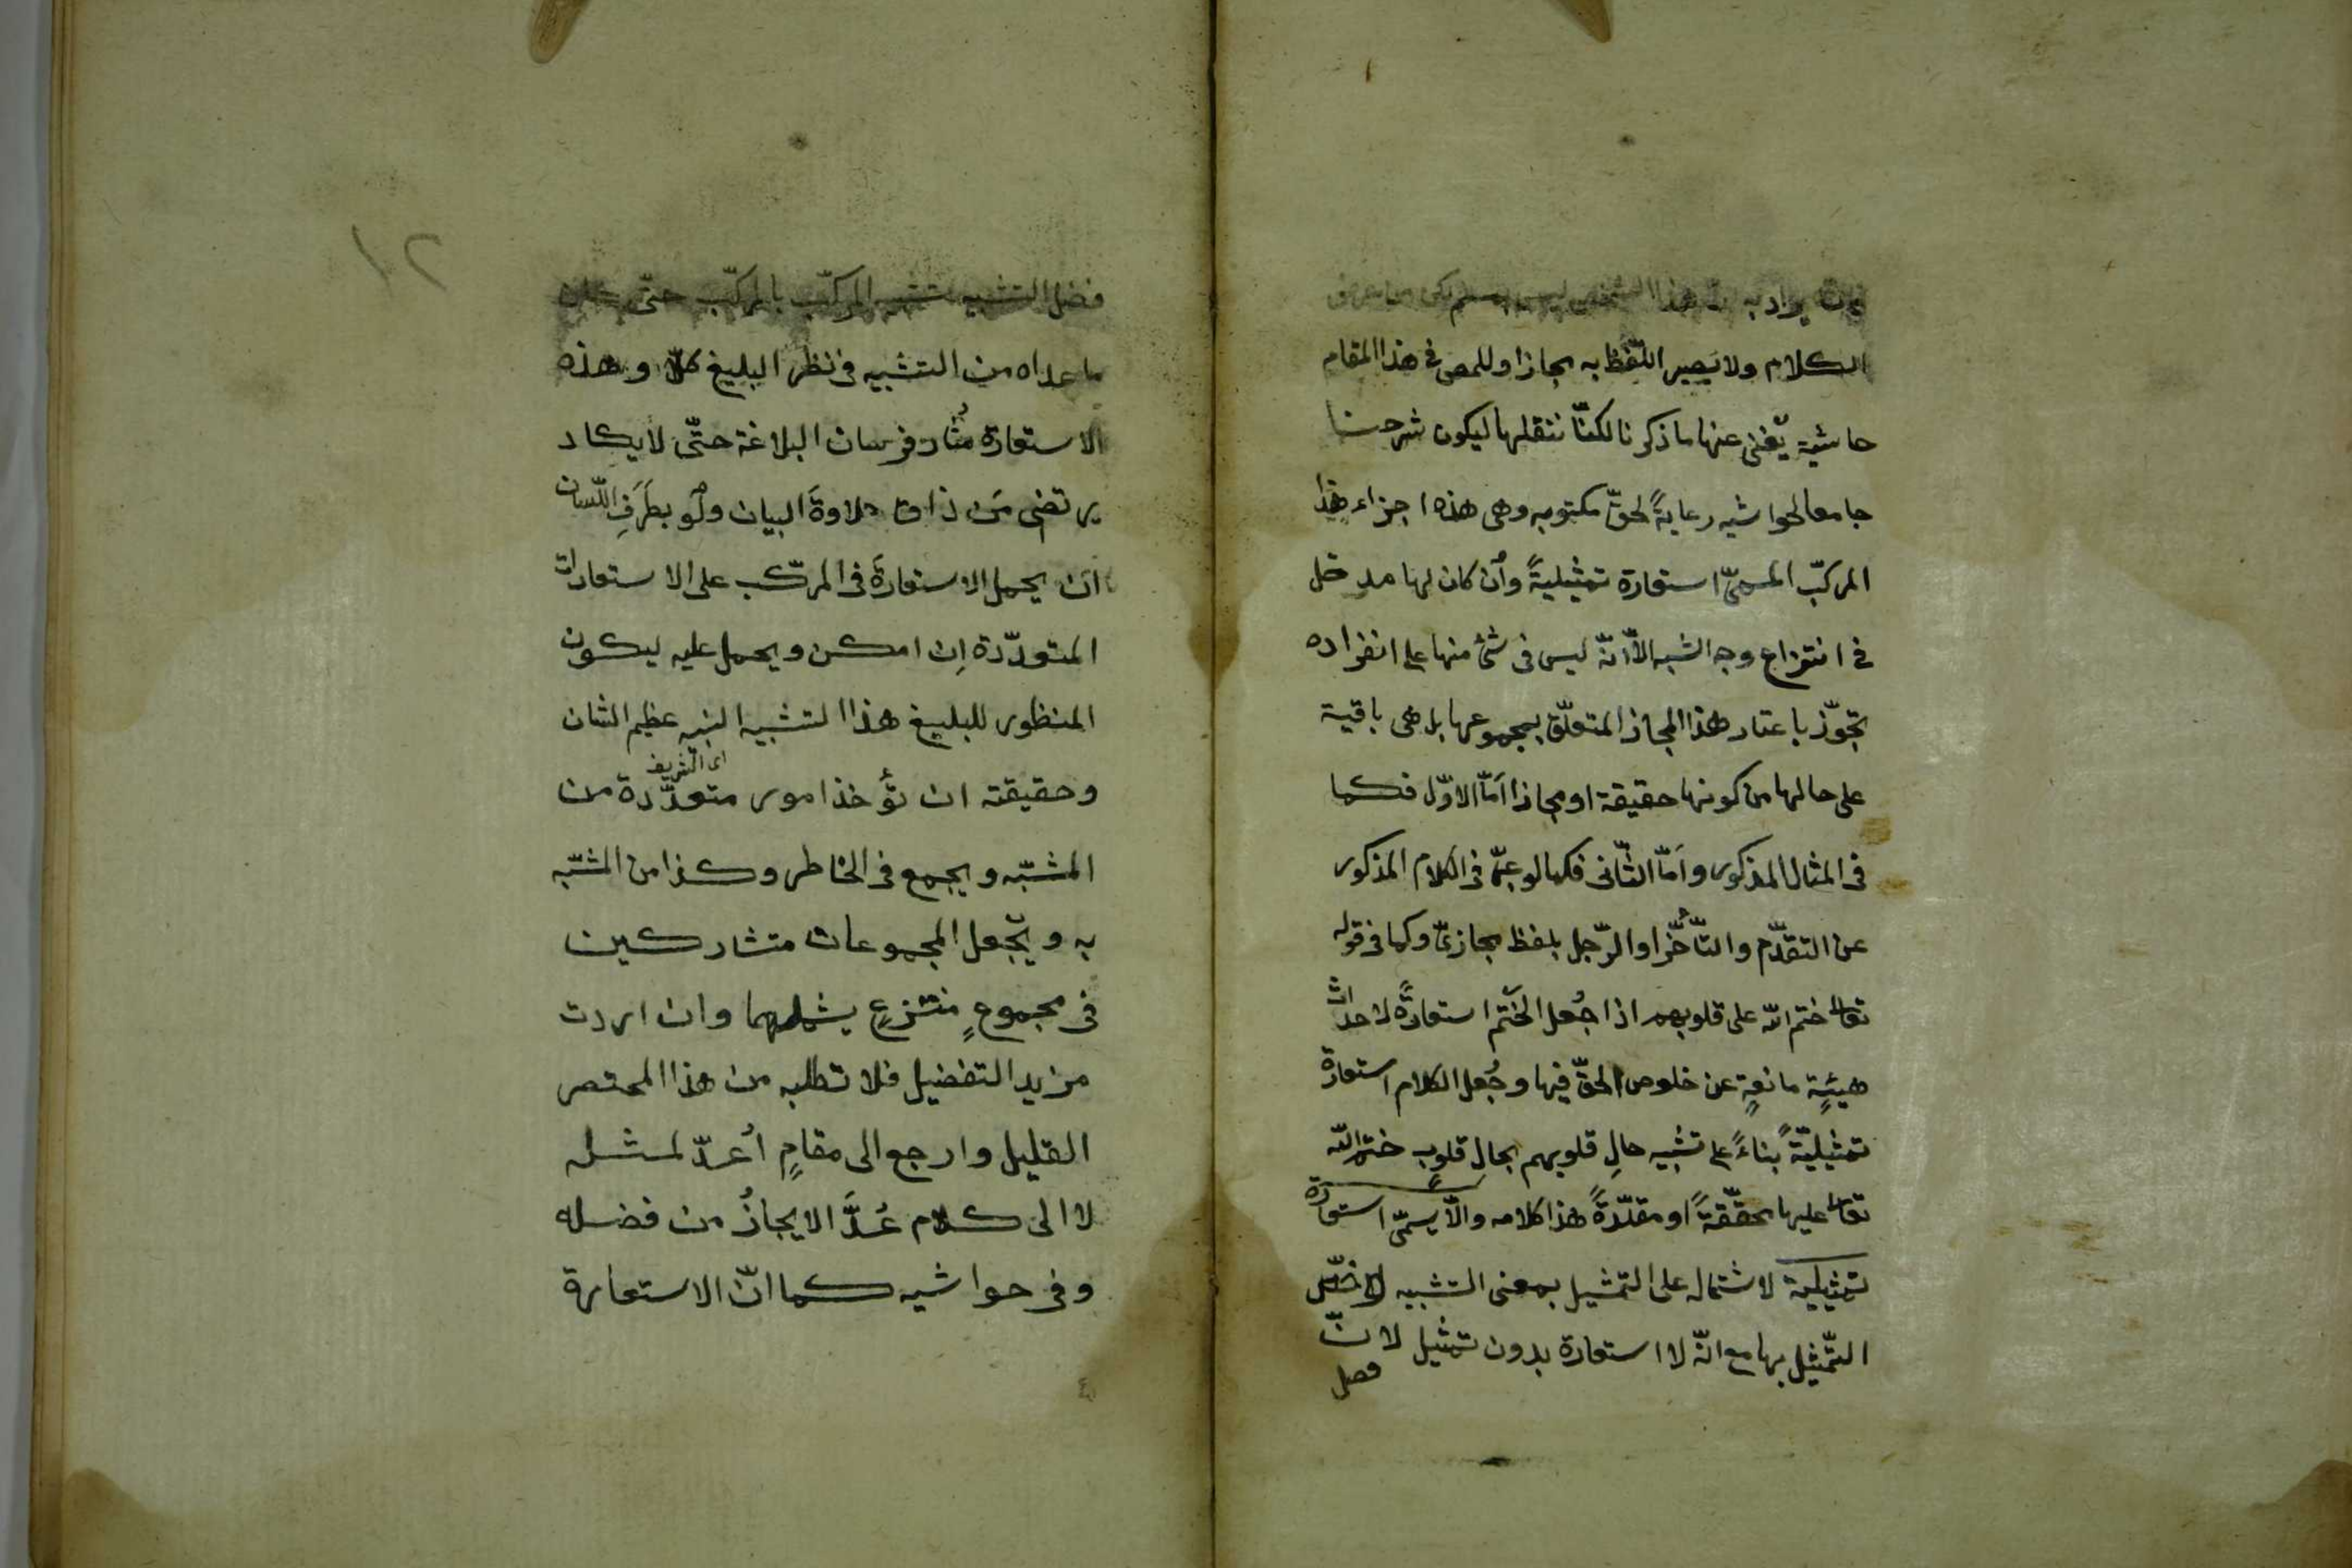 يراد به هذا الشخص ليس
الكلام ولا يَصير اللّفظ به مجازا وللمص في هذا المقام
حاشية يُغنى عنها ما ذكرنا لكنّا ننقلها ليكون شرحنا
جامعا لحواشيه رعايةً لحقّ مكتوبه وهى هذه اجزاء هذا
المركّب المسمّى استعارة تمثيليةً وأن كان لها مدخل
في انتزاع وجه الشبه الّا انّه ليس فى شئ منها على انفراده
تجوّز باعتبار هذا المجاز المتعلّق بمجموعها بل هى باقية
على حالها من كونها حقيقة او مجازا امّا الاوّل فكما
فى المثال المذكور وامّا الثّانى فكما لو عبّر فى الكلام المذكور
عن التقدّم والتّأخّر او الرّجل بلفظ مجازىّ وكما فى قوله
تعالى ختم اللّه على قلوبهم اذا جُعل الختم استعارةً لاحداث
هيئةٍ مانعةٍ عن خلوص الحقّ فيها وجُعل الكلام استعارة
تمثيليّةً بناءً على تشبيه حالِ قلوبهم بحال قلوب ختم اللّه
تعالى عليها محقّقةً او مقدّرةً هذا كلامه والّا يسمّى استعارة
تمثيلية لاشتماله على التمثيل بمعنى التشبيه
التّمثيل بها مع انّه لا استعارة بدون تمثيل لانّ
فضل
١٢
فضل التشبيه تشبيه المركّب بالمركّب حتّى
ما عداه من التشبيه فى نظر البليغ كلا وهذه
الاستعارة مُثار فرسان البلاغة حتّى لا يكاد
يرتضى مَن ذاق حلاوةَ البيان ولَو بطَرَفِ اللّسان
ان يحمل الاستعارةَ فى المركّب على الاستعارات
المتعدّدة اِن امكن ويحمل عليه ليكون
المنظور للبليغ هذا التشبيه النبيه عظيم الشان
اى الشريف
وحقيقته ان تؤخذ امور متعدّدة من
المشبّه ويجمع فى الخاطر وكذا من المشبّه
به ويُجعل المجموعات متشاركين
فى مجموعٍ منتزعٍ يشملهما وان اردت
مزيد التفضيل فلا تطلبه من هذا المختصر
القليل وارجع الى مقامٍ اُعدّ لمثله
لا الى كلام عُدَّ الايجازُ من فضله
وفى حواشيه كما انّ الاستعارة